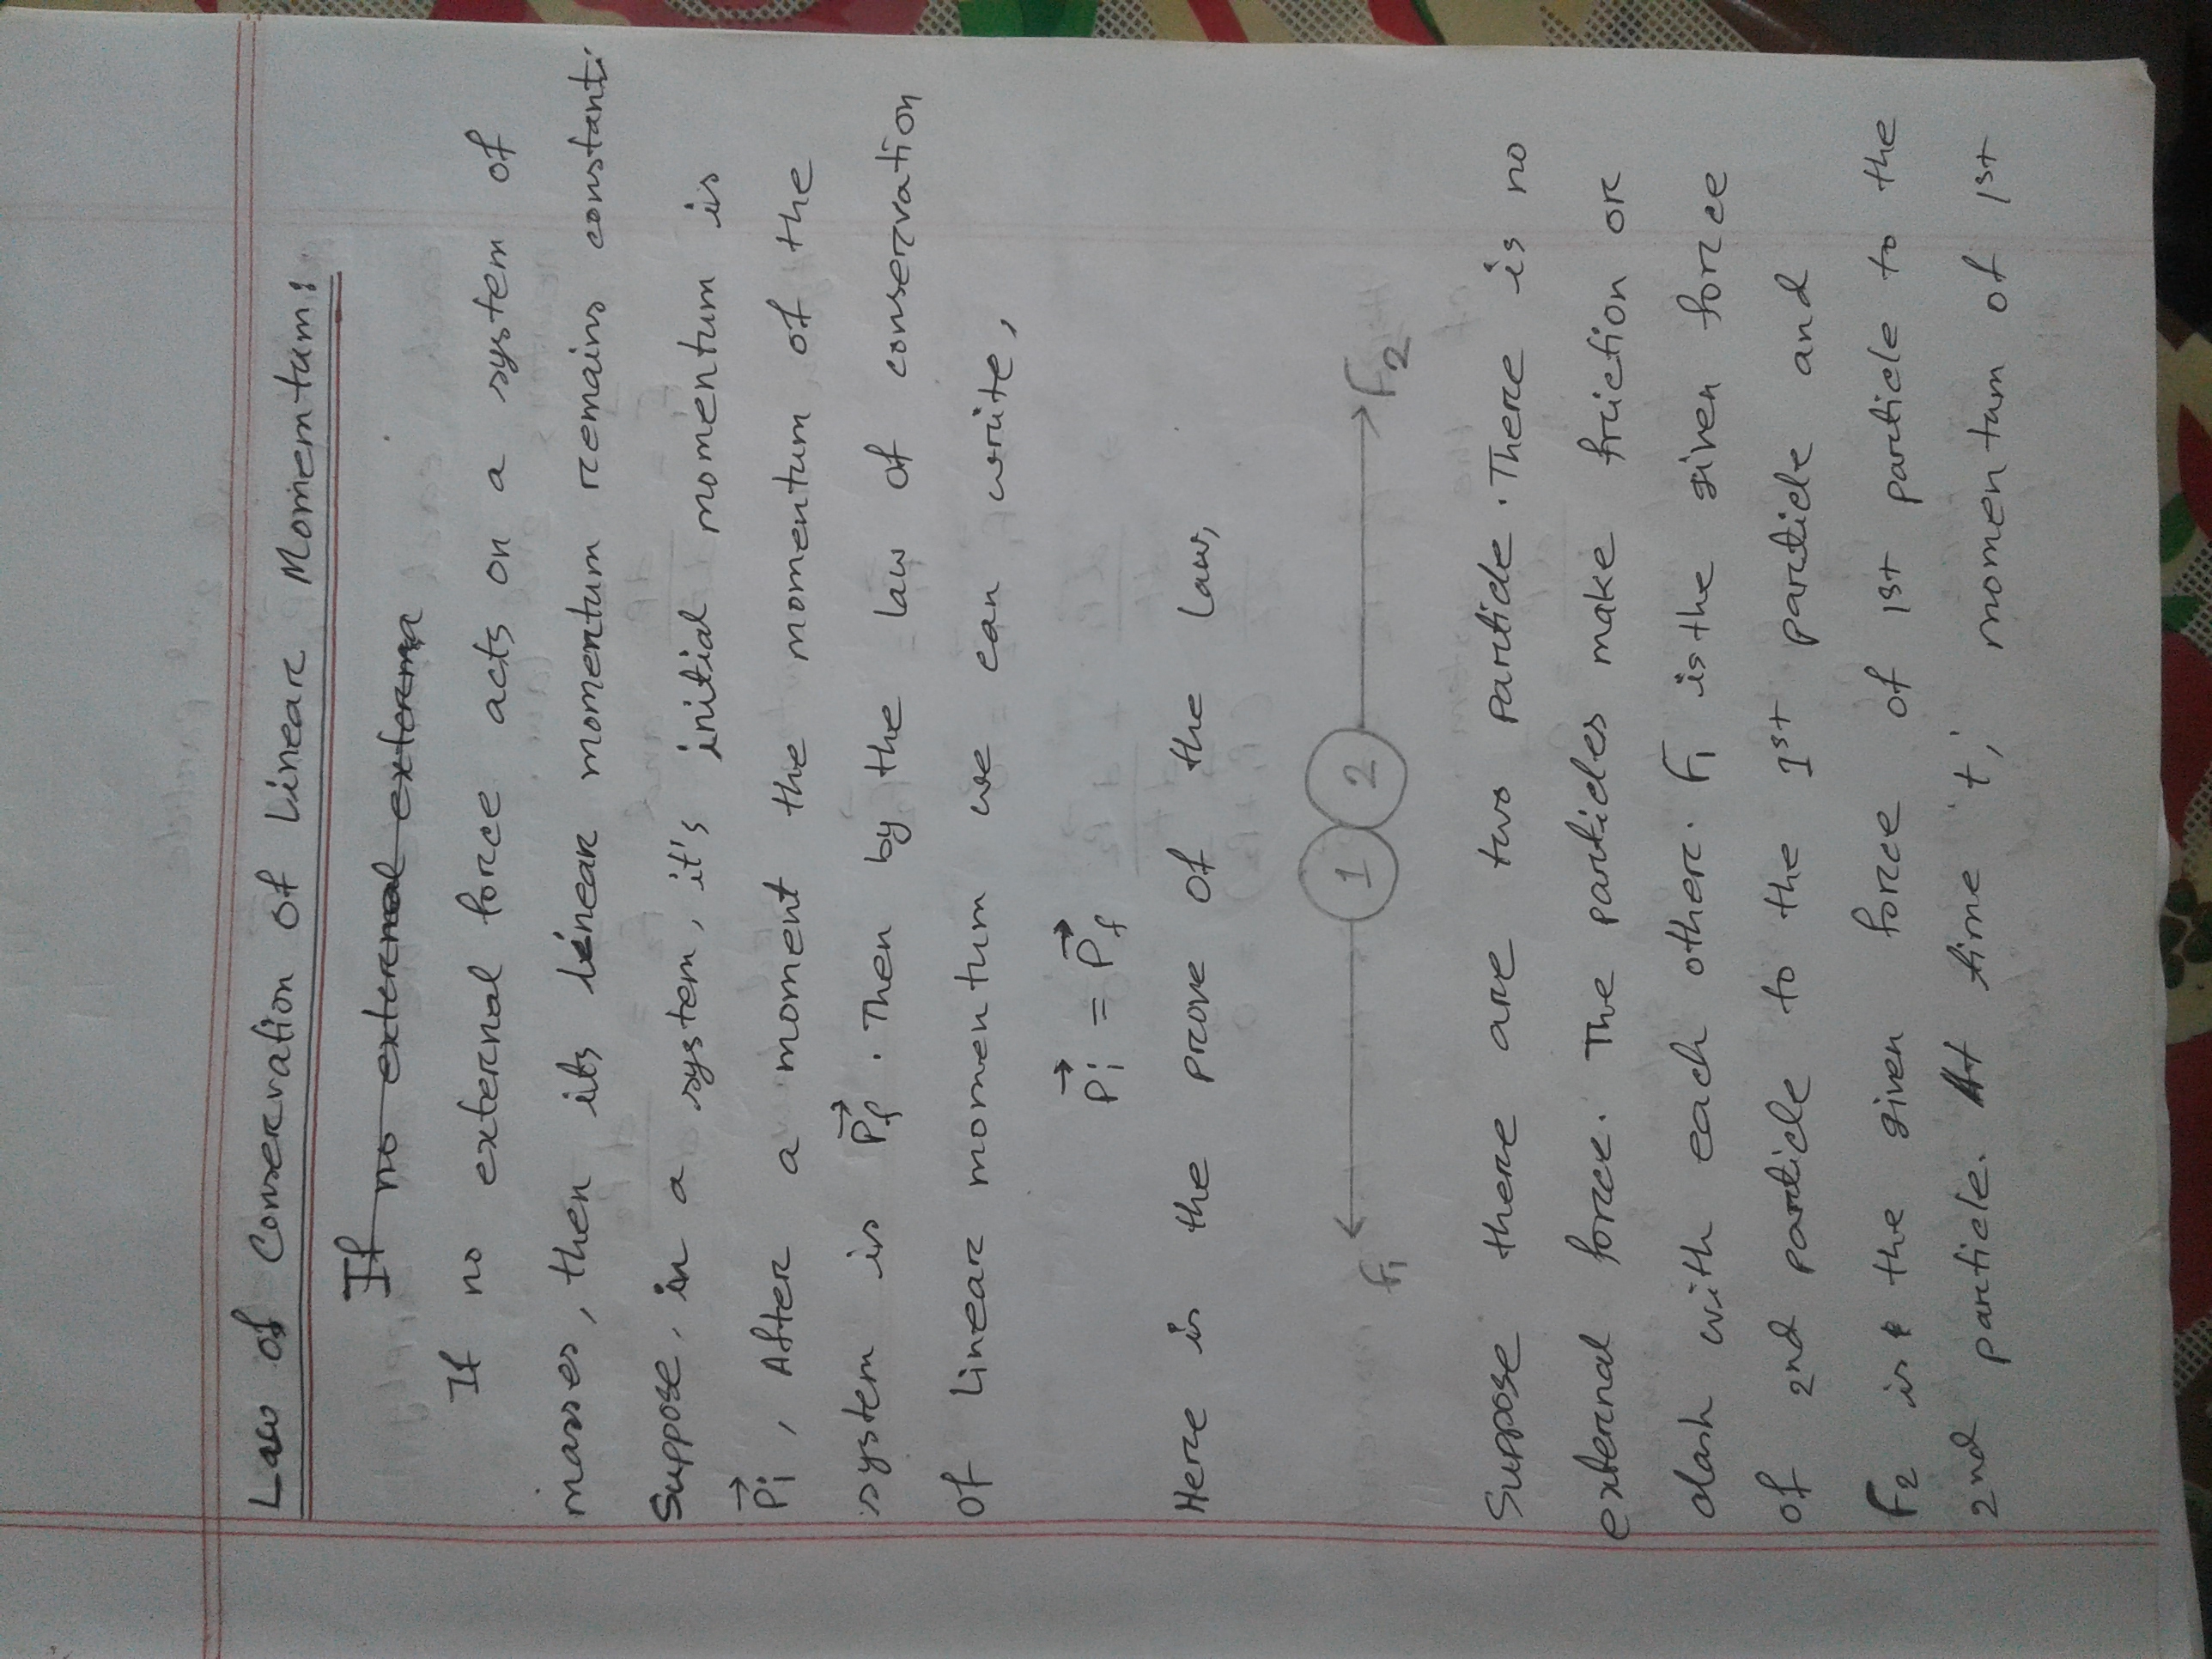 Law of Conservation of Linear Momemtum:
If no external externa
If no external force acts on a system of
masses, then its linear momentum remains constant.
Suppose, in a system, it's initial momentum is
P⃗i, After a moment the momentum of the
system is P⃗f. Then by the law of conservation
of linear momentum we can write,
P⃗i = P⃗f
Here is the prove of the law,
F₁ 1 2 F₂
Suppose there are two particle. There is no
external force. The particles make friction or
dash with each other. F₁ is the given force
of 2nd particle to the 1st particle and
F₂ is the given force of 1st particle to the
2nd particle. At time 't', momentum of 1st